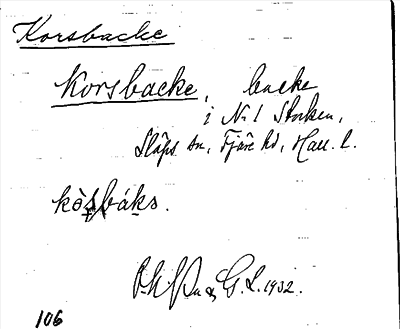 Korsbacke
Korsbacke, backe
i No 1 Stocken,
Släps sn, Fjäre hd, Hall. l.
kòșbáks.
G. L. 1932.
106